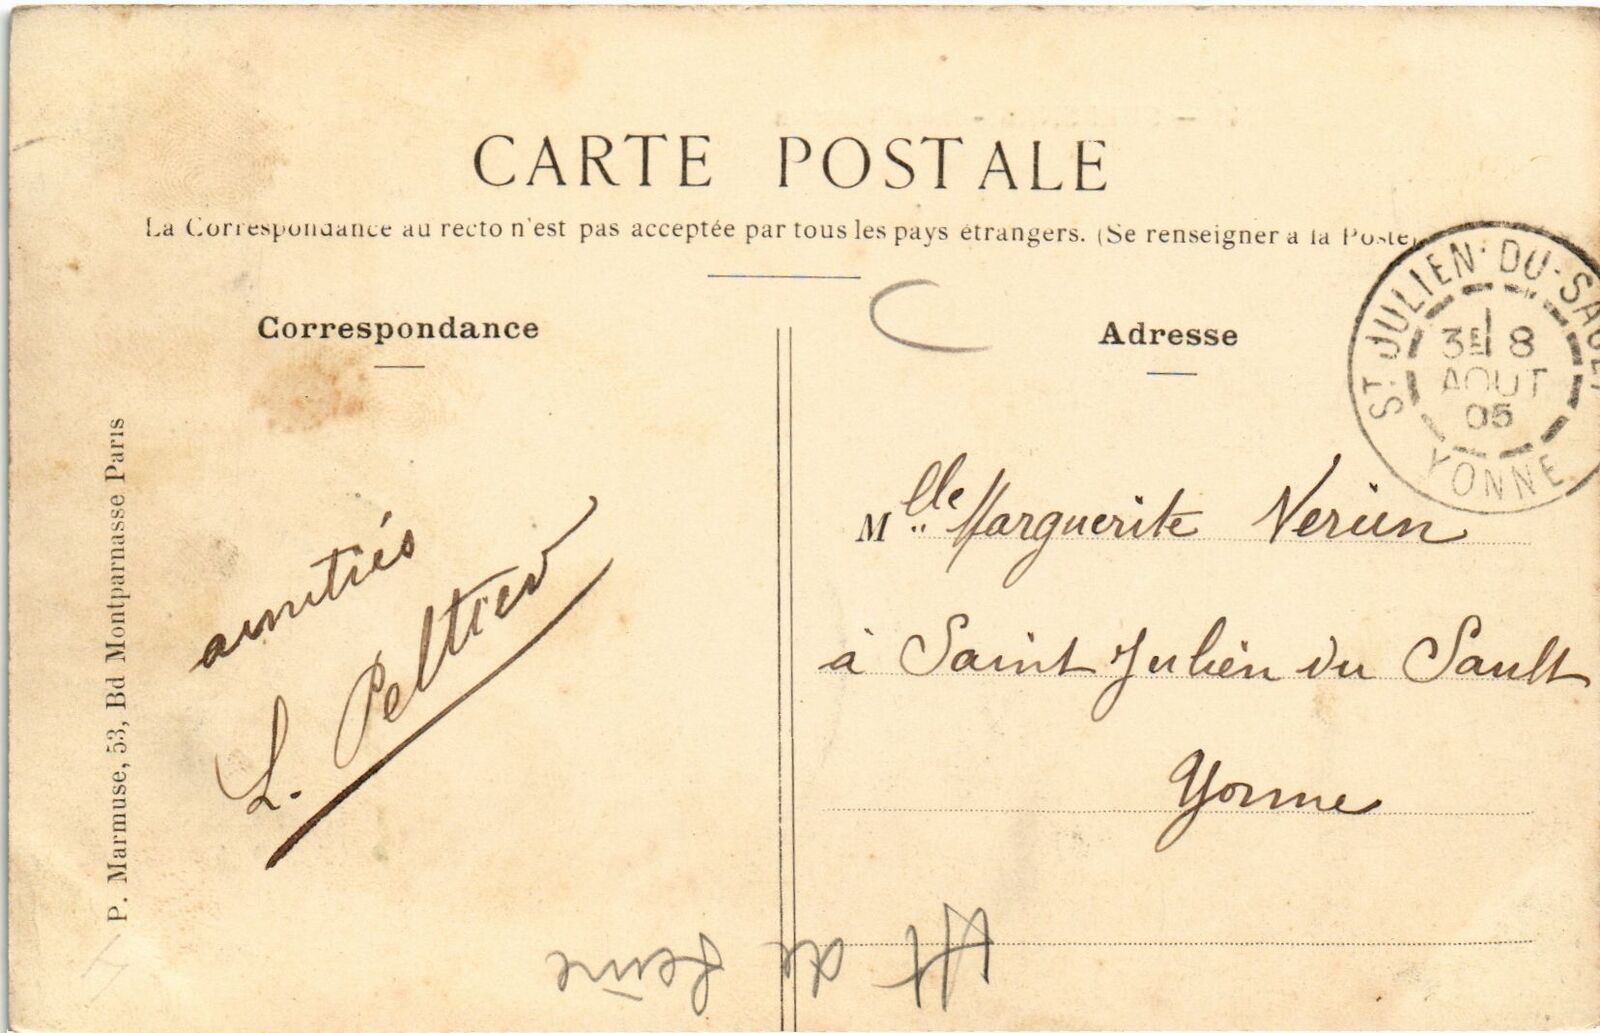 CARTE POSTALE
La Correspondance au recto n'est pas acceptée par tous les pays étrangers. (Se renseigner à la Poste)
Correspondance
amitiés
L. Peltier
P. Marmuse, 53, Bd Montparnasse Paris
Adresse
ST JULIEN-DU-SAULT
3E 8
AOUT
05
YONNE
Mlle Marguerite
à Saint Julien du Sault
Yonne
Ht de Seine